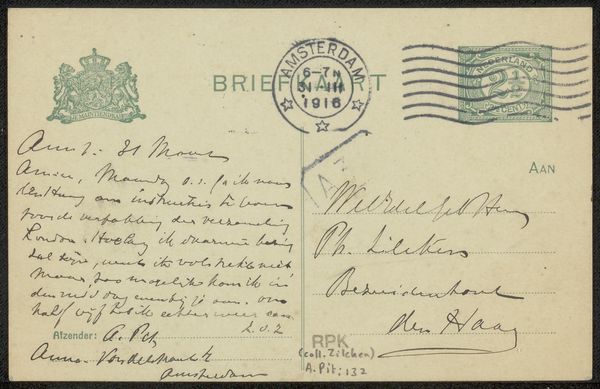 BRIEFKAART
AMSTERDAM
6-7 N
31 III
1916
NEDERLAND
2½
CENT
JE MAINTIENDRAI
AAN
Amst. 31 Maart
Amice, Maandag a.s. ga ik naar
den Haag om instructies te
voor de verpakking der verzameling
London. Hoelang ik daarmee bezig
zal zijn, weet ik volstrekt niet
Maar, zoo mogelijk kom ik in
den middag even bij je aan. Om
half vijf heb ik echter weer een
t. à t.
Afzender: A. Pit
Anna Vondelstraat
Amsterdam
WelEdelGeb Heer
Ph. Zilcken
Bezuidenhout
den Haag
RPK
(coll. Zilcken)
A. Pit; 132